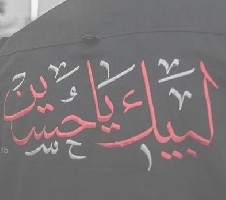 لبيك يا حسين